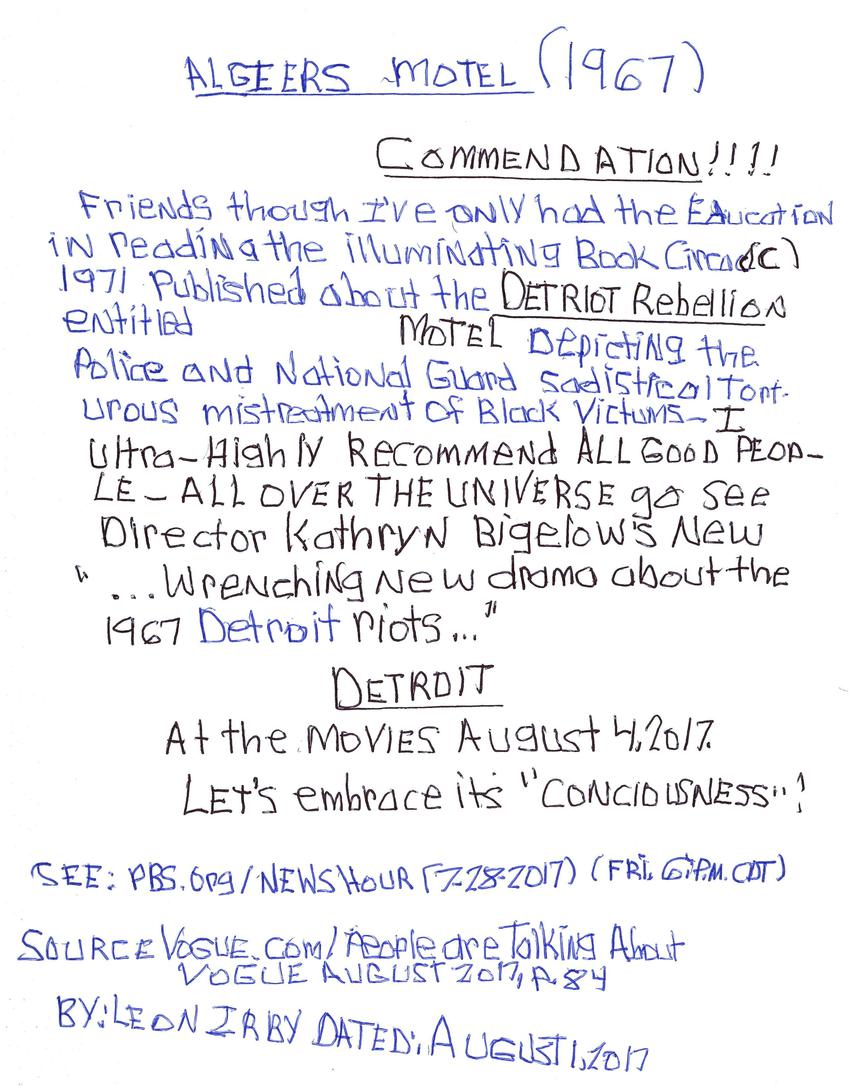 ALGEERS MOTEL (1967)
COMMENDATION!!!!
Friends though I've only had the EDucation
iN reading the illumiNating Book Circa (C)
1971 Published about the DETRIOT Rebellion
eNtitled MOTEL Depicting the
Police and National Guard sadistical Tort-
urous mistreatment of Black Victums - I
Ultra-Highly Recommend ALL GOOD PEOP-
LE - ALL OVER THE UNIVERSE go see
Director Kathryn Bigelow's New
"...Wrenching New drama about the
1967 Detroit riots..."
DETROIT
At the MOVIES August 4, 2017.
LET's embrace its "CONCIOUSNESS"!
SEE: PBS.Org/NEWSHOUR (7-28-2017) (FRI. 6:P.M. CDT)
SOURCE VOGUE.com/People are Talking About
VOGUE AUGUST 2017, P. 84
BY: LEON IRBY DATED: AUGUST 1, 2017